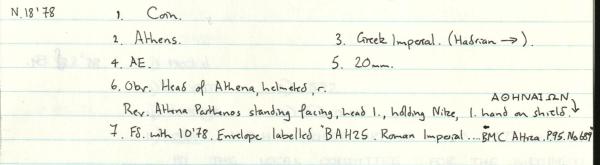 N.18'78
1. Coin.
2. Athens.
3. Greek Imperial. (Hadrian →).
4. AE.
5. 20mm.
6. Obv. Head of Athena, helmeted, r.
ΑΘΗΝΑΙΩΝ
Rev. Athena Parthenos standing facing, head l., holding Nike, l. hand on shield.
7. Fd. with 10'78. Envelope labelled "BAH25. Roman Imperial... BMC Attica. P95. No 689"